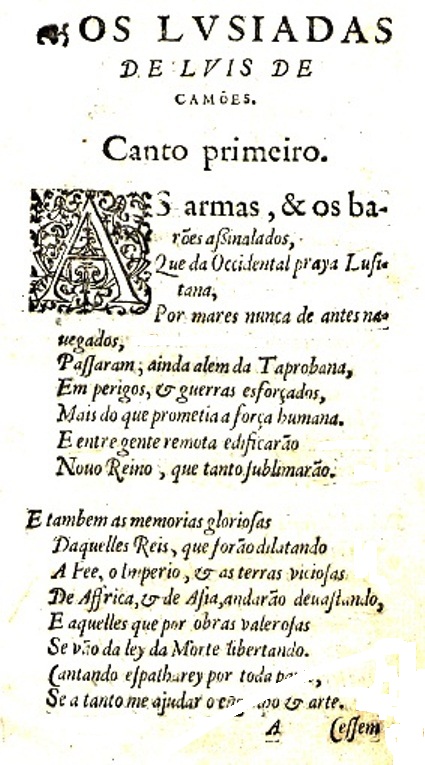 OS LVSIADAS
DE LVIS DE
CAMÕES.
Canto primeiro.
AS armas, & os ba-
rões aſsinalados,
Que da Occidental praya Luſi-
tana,
Por mares nunca de antes na-
uegados,
Paſſaram, ainda alem da Taprobana,
Em perigos, & guerras esforçados,
Mais do que prometia a força humana.
E entre gente remota edificarão
Nouo Reino, que tanto ſublimarão.
E tambem as memorias glorioſas
Daquelles Reis, que forão dilatando
A Fee, o Imperio, & as terras vicioſas
De Affrica, & de Aſia, andarão deuaſtando,
E aquelles que por obras valeroſas
Se vão da ley da Morte libertando.
Cantando eſpalharey por toda
Se a tanto me ajudar o & arte.
A
Ceſſem